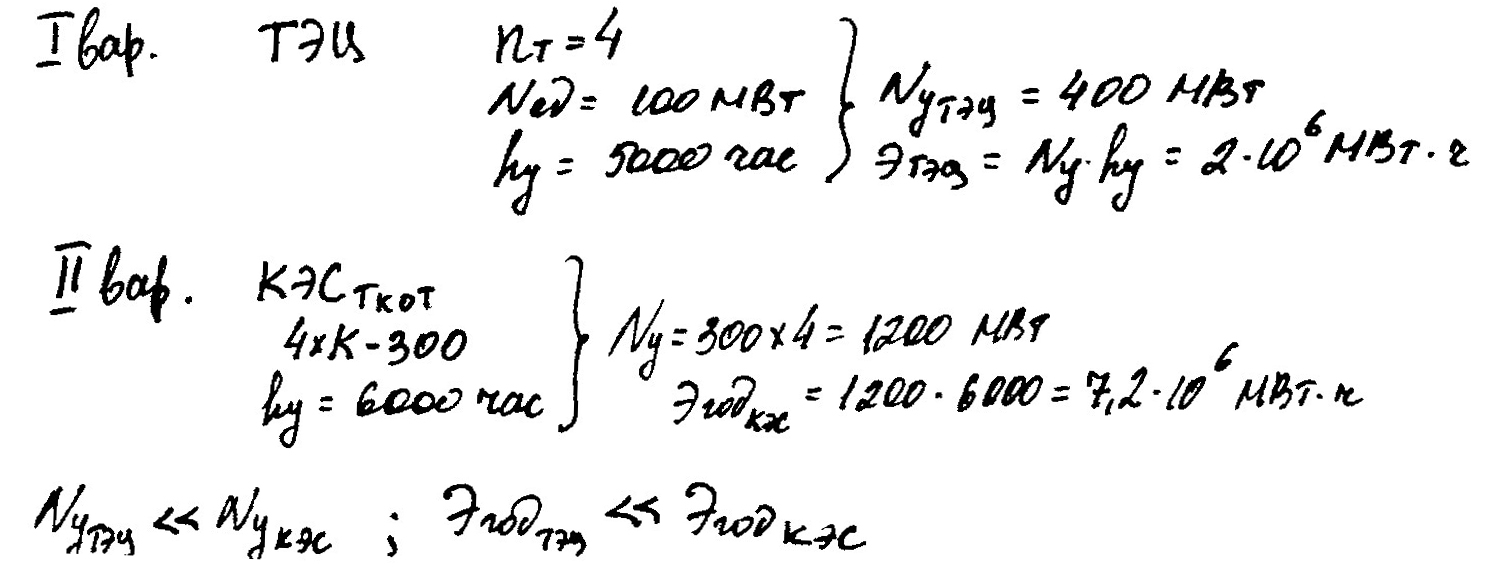 I вар. ТЭЦ nт = 4
Nед = 100 МВт
hу = 5000 час
Nу ТЭЦ = 400 МВт
Этэц = Nу · hу = 2·10⁶ МВт·ч
II вар. КЭС Ткот
4хК-300
hу = 6000 час
Nу = 300х4 = 1200 МВт
Эгод кэс = 1200 · 6000 = 7,2·10⁶ МВт·ч
Nу ТЭЦ << Nу КЭС ; Эгод ТЭЦ << Эгод КЭС